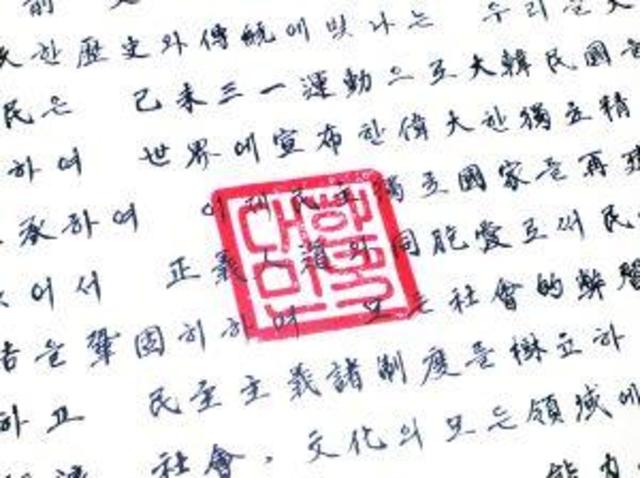 前
한 歷史와 傳統에 빗나는 우리들
民은 己未三一運動으로 大韓民國을
하여 世界에 宣布한 偉大한 獨立精
承하여 이제 民主獨立國家를 再建
어서 正義人道와 同胞愛로써 民
을 鞏固히하며 모든 社會的弊習
하고 民主主義諸制度를 樹立하
社會, 文化의 모든 領域에
能力
대한민국